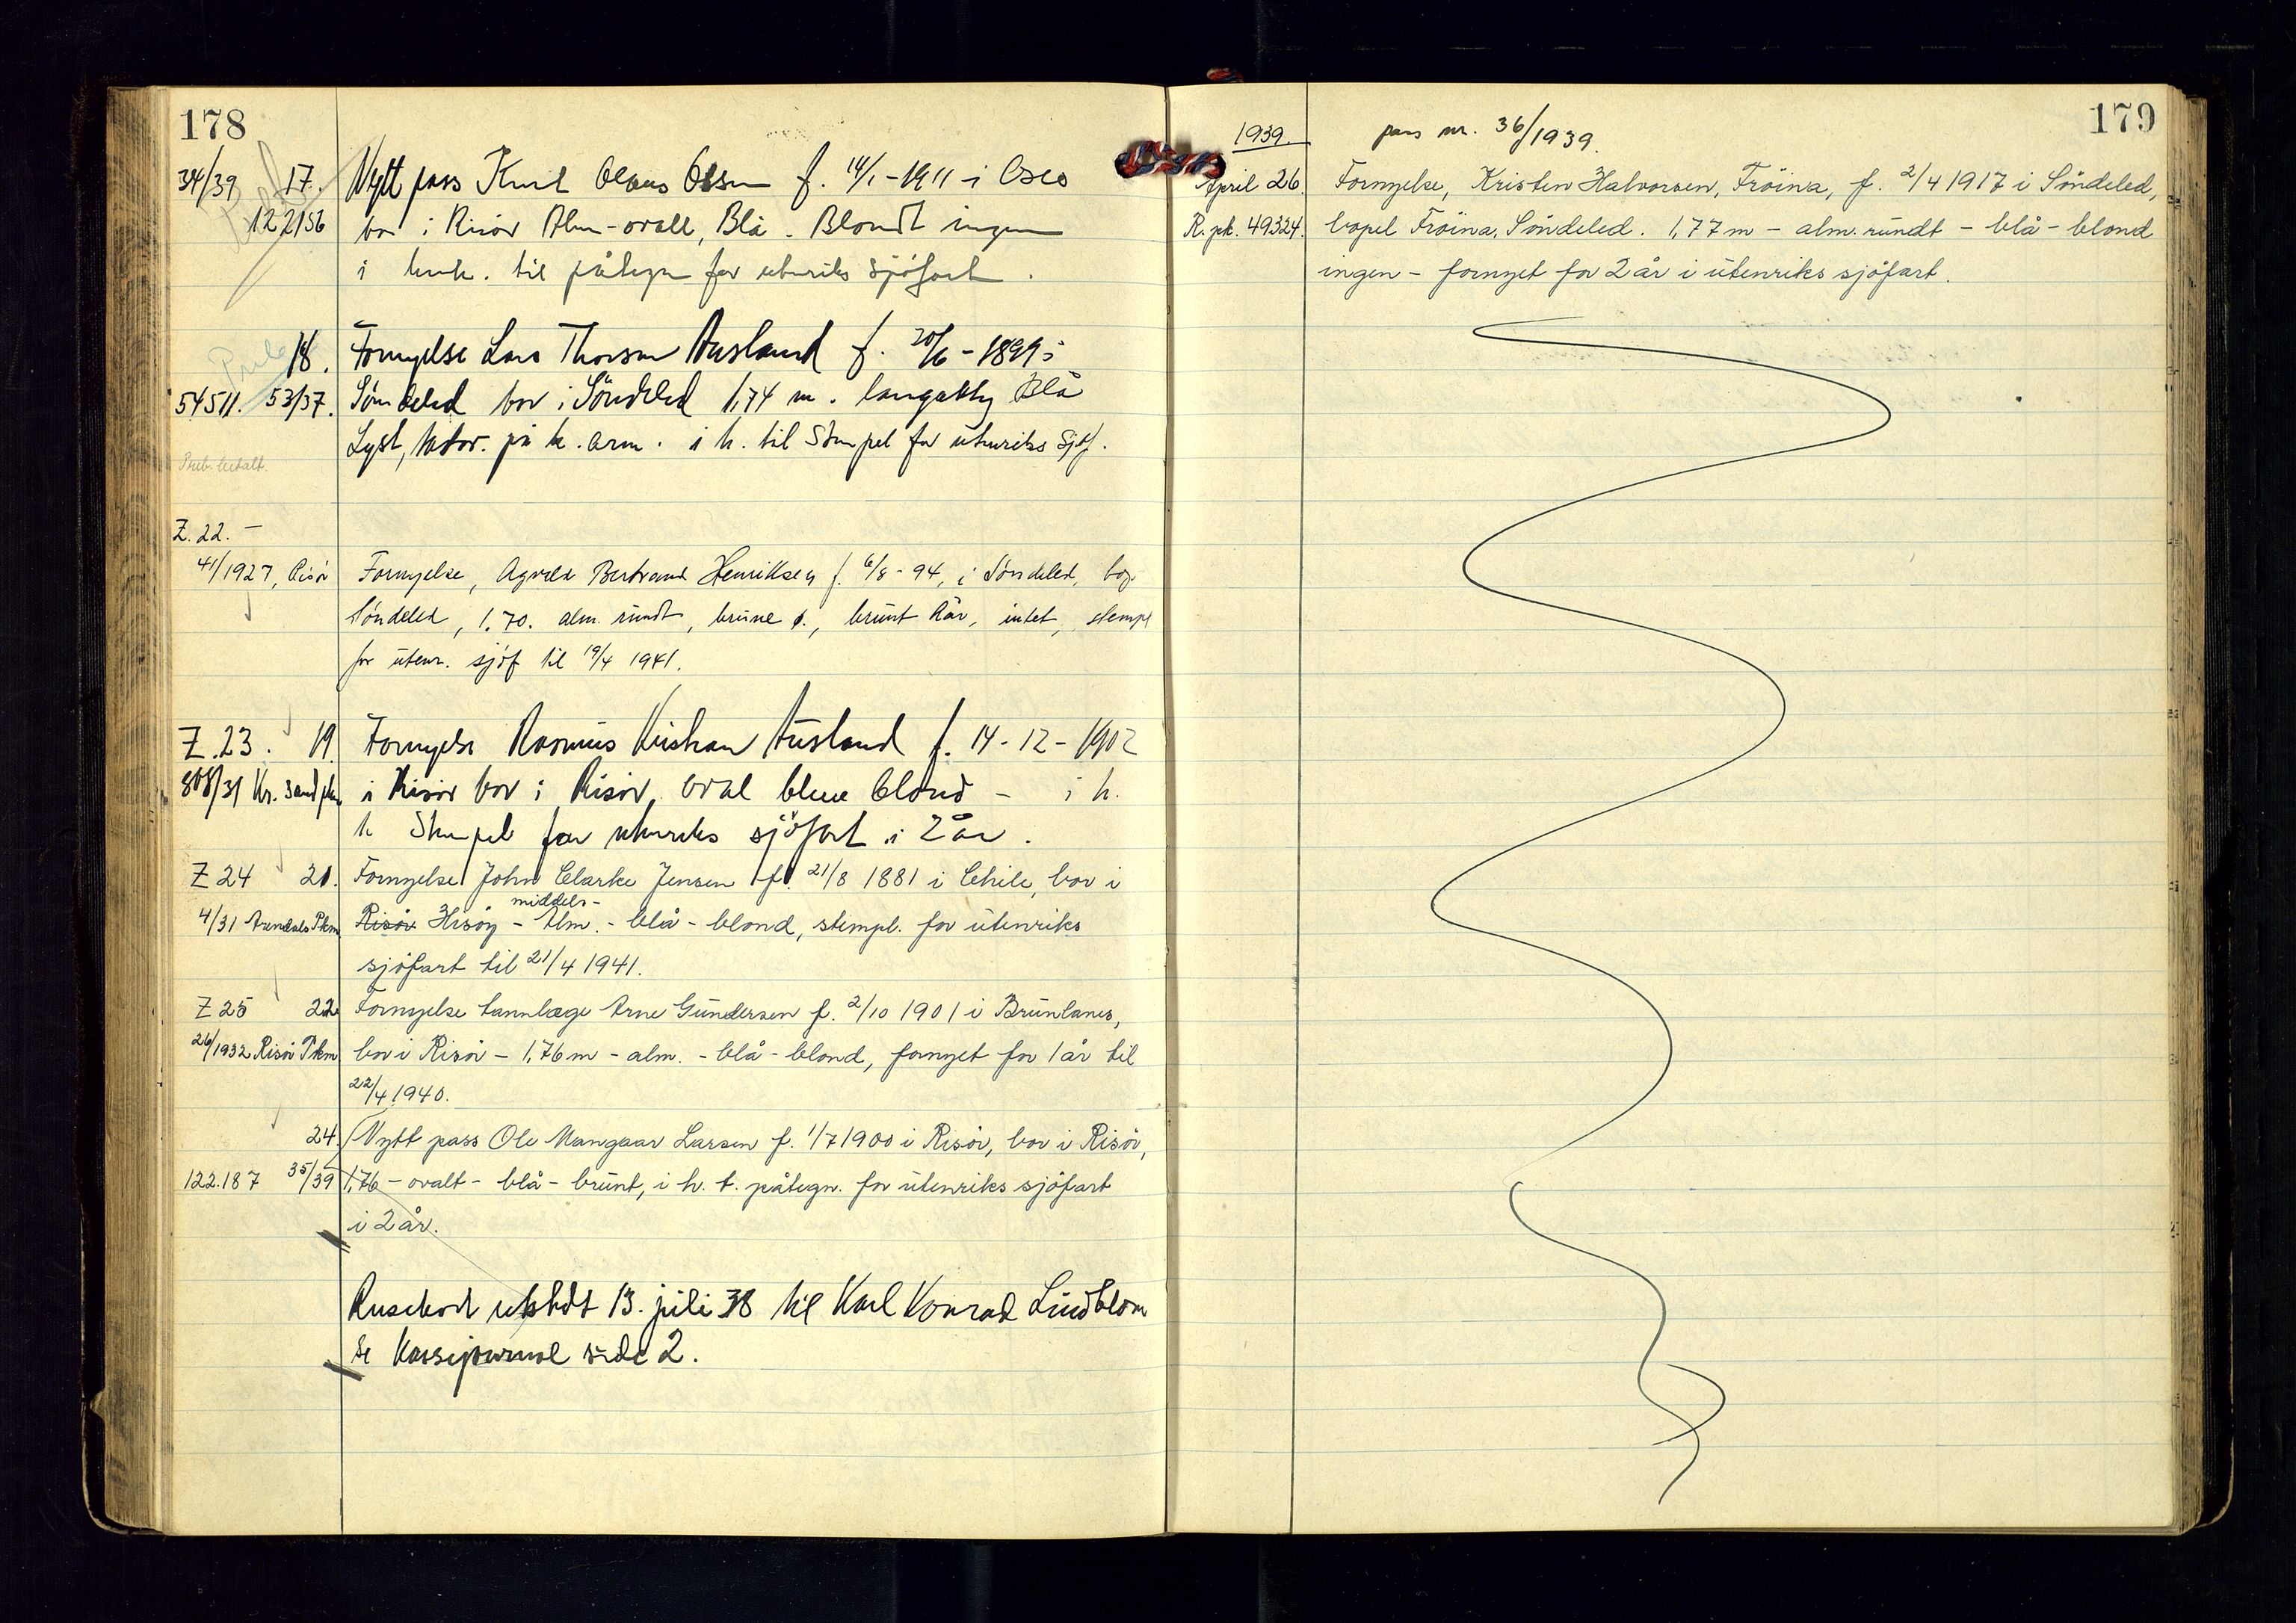 178
34/39 17. Nytt pass Knut Olaus Olsen f. 14/1-1911 i Oslo
122156 bor i Risör Alm-ovalt, Blå - Blondt ingen
i henh. til påtegn for utenriks sjöfart.
18. Fornyelse Lars Thorsen Ausland f. 20/6-1899 i
54511. 53/37. Söndeled bor i Söndeled 1,74 m. langaktig Blå
Lyst, tator. på h. arm. i h. til Stempel for utenriks sjöf.
Z. 22. -
41/1927, Risör Fornyelse, Agvald Bertrand Henriksen f. 6/8-94, i Söndeled, bor
Söndeled, 1.70. alm. rundt, brune ø., brunt hår, intet, stempl
for utenr. sjöf til 19/4 1941.
Z. 23. 19. Fornyelse Rasmus Kristian Ausland f. 14-12-1902
808/31 Kr. sand pkm i Risör bor i Risör, oval blaa blond - i h.
h Stempel for utenriks sjöfart i 2 år.
Z 24 21. Fornyelse John Clarke Jensen f. 21/8 1881 i Chile, bor i
middels-
4/31 Arendals Pkm Risör Hisöy - Alm. - blå - blond, stempl. for utenriks
sjöfart til 21/4 1941.
Z 25 22 Fornyelse tannlæge Arne Gundersen f. 2/10 1901 i Brunlanes,
26/1932 Risör Pkm bor i Risör - 1,76 m - alm. - blå - blond, fornyet for 1 år til
22/4 1940.
24. Nytt pass Ole Mangaar Larsen f. 1/7 1900 i Risör, bor i Risör,
122.187 35/39 1,76 - ovalt - blå - brunt, i h. t. påtegn. for utenriks sjöfart
i 2 år.
utstedt 13. juli 38 til Karl Konrad Lindblom
se Kassejournal side 2.
179
1939. pass nr. 36/1939.
April 26. Fornyelse, Kristen Halvorsen, Fröina, f. 2/4 1917 i Söndeled,
R. pk. 49324. bopel Fröina, Söndeled. 1,77 m - alm. rundt - blå - blond
ingen - fornyet for 2 år i utenriks sjöfart.